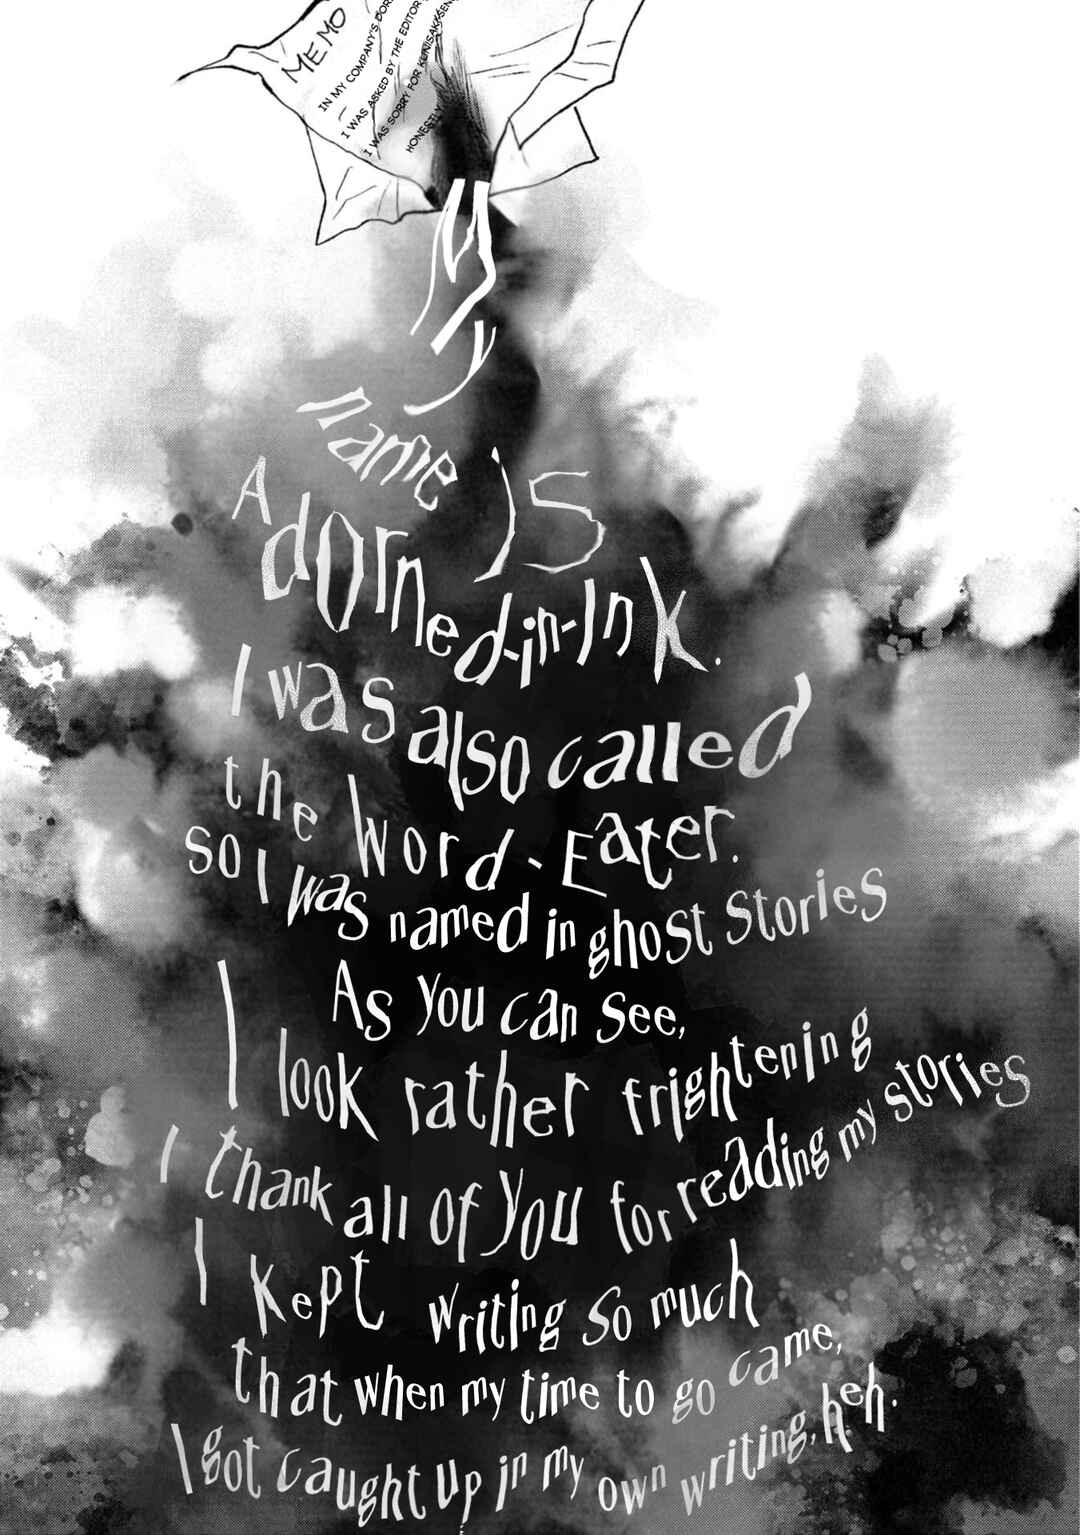 MEMO
IN MY COMPANY'S
I WAS ASKED BY THE EDITOR
I WAS SORRY FOR
HONESTLY
My
name is
Adorned-in-Ink.
I was also called
the Word-Eater.
So I was named in ghost stories
As you can see,
I look rather frightening
I thank all of you for reading my stories
I kept writing so much
that when my time to go came,
I got caught up in my own writing, heh.